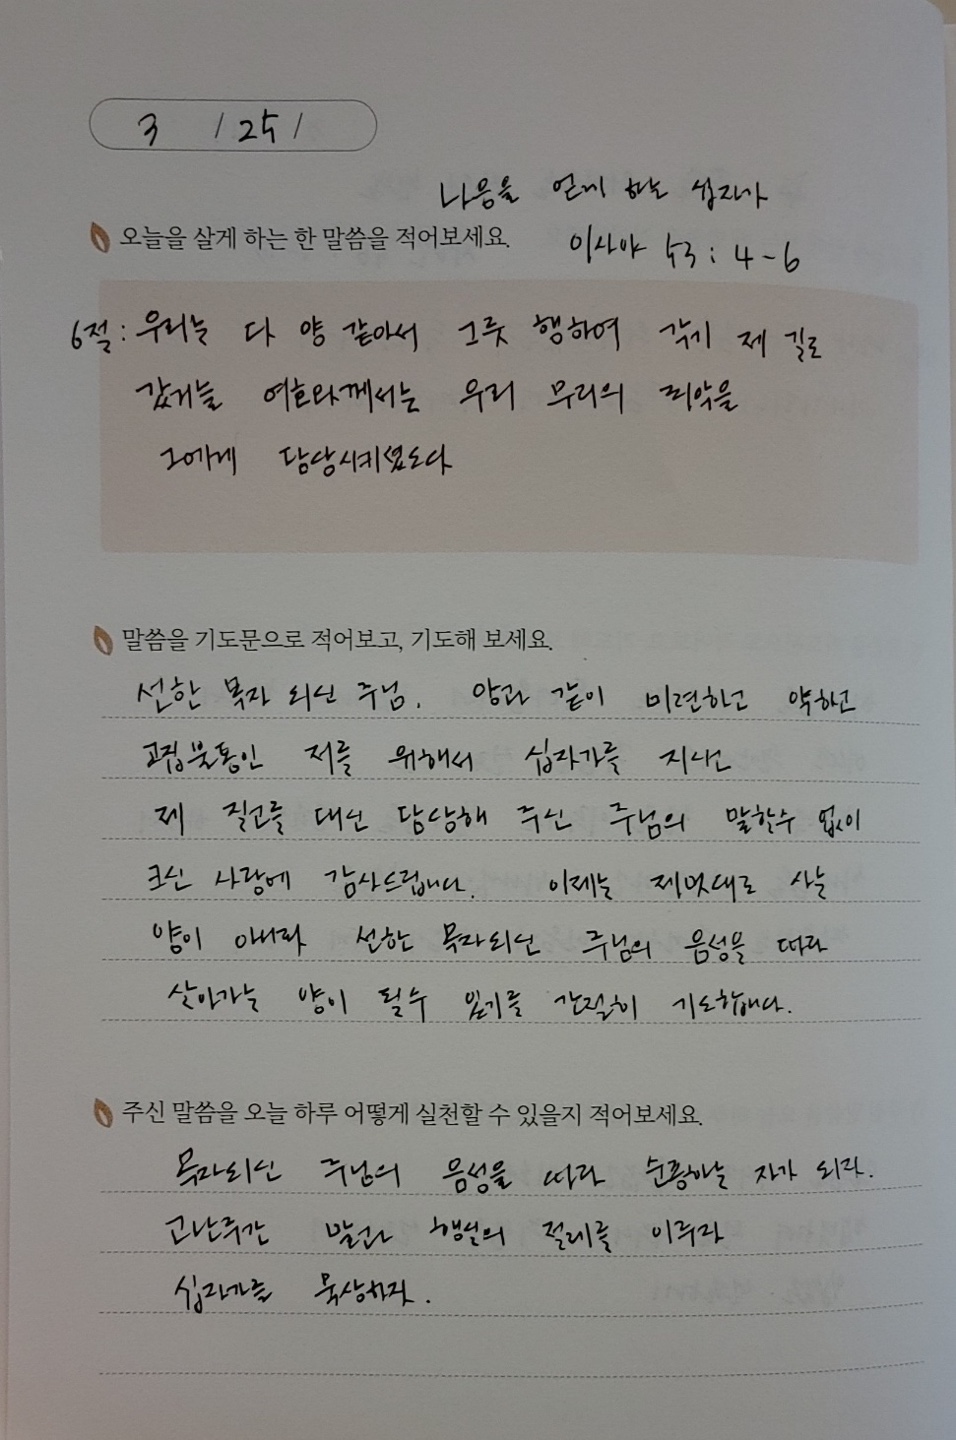 3 / 25 /
나음을 얻게 하는 십자가
오늘을 살게 하는 한 말씀을 적어보세요.
이사야 53 : 4 - 6
6절 : 우리는 다 양 같아서 그릇 행하여 각기 제 길로
갔거늘 여호와께서는 우리 무리의 죄악을
그에게 담당시키셨도다
말씀을 기도문으로 적어보고, 기도해 보세요.
선한 목자 되신 주님. 양과 같이 미련하고 약하고
고집불통인 저를 위해서 십자가를 지시고
제 질고를 대신 담당해 주신 주님의 말할수 없이
크신 사랑에 감사드립니다. 이제는 제멋대로 사는
양이 아니라 선한 목자되신 주님의 음성을 따라
살아가는 양이 될수 있기를 간절히 기도합니다.
주신 말씀을 오늘 하루 어떻게 실천할 수 있을지 적어보세요.
목자되신 주님의 음성을 따라 순종하는 자가 되자.
고난주간 말과 행실의 절제를 이루자
십자가를 묵상하자.